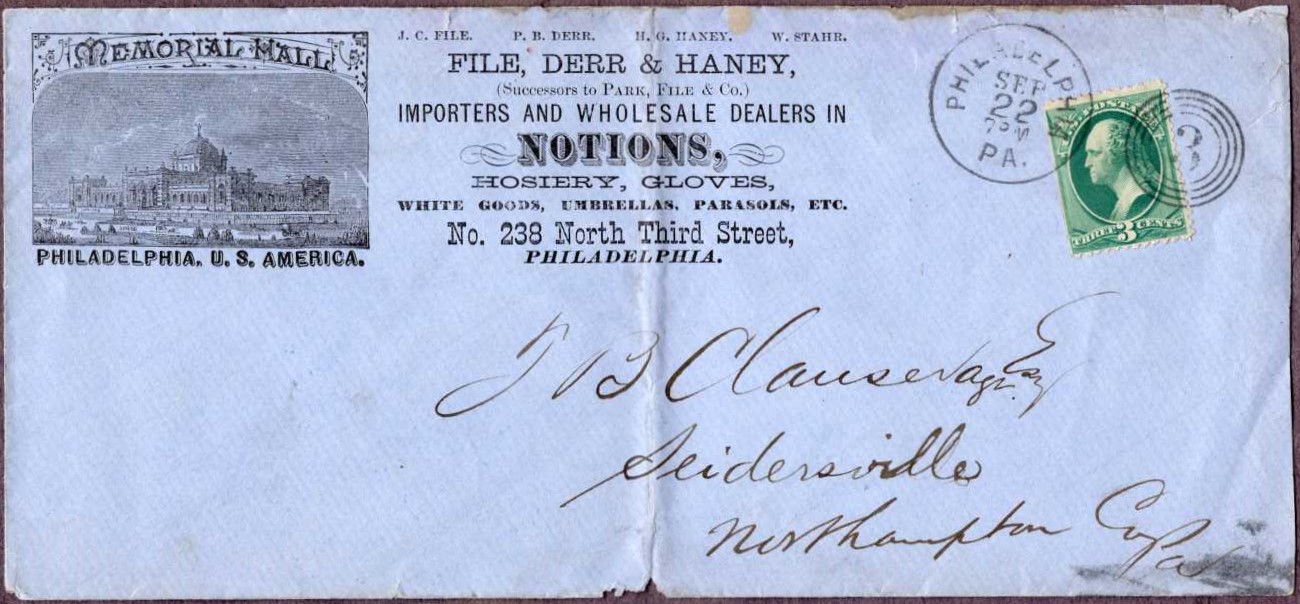 MEMORIAL HALL
PHILADELPHIA, U. S. AMERICA.
J. C. FILE. P. B. DERR. H. G. HANEY. W. STAHR.
FILE, DERR & HANEY,
(Successors to PARK, FILE & Co.)
IMPORTERS AND WHOLESALE DEALERS IN
NOTIONS,
HOSIERY, GLOVES,
WHITE GOODS, UMBRELLAS, PARASOLS, ETC.
No. 238 North Third Street,
PHILADELPHIA.
PHILADELPHIA
SEP
22
7 PM
PA.
3
THREE 3 CENTS
J B Clause Esq
Seidersville
Northampton Co
Pa